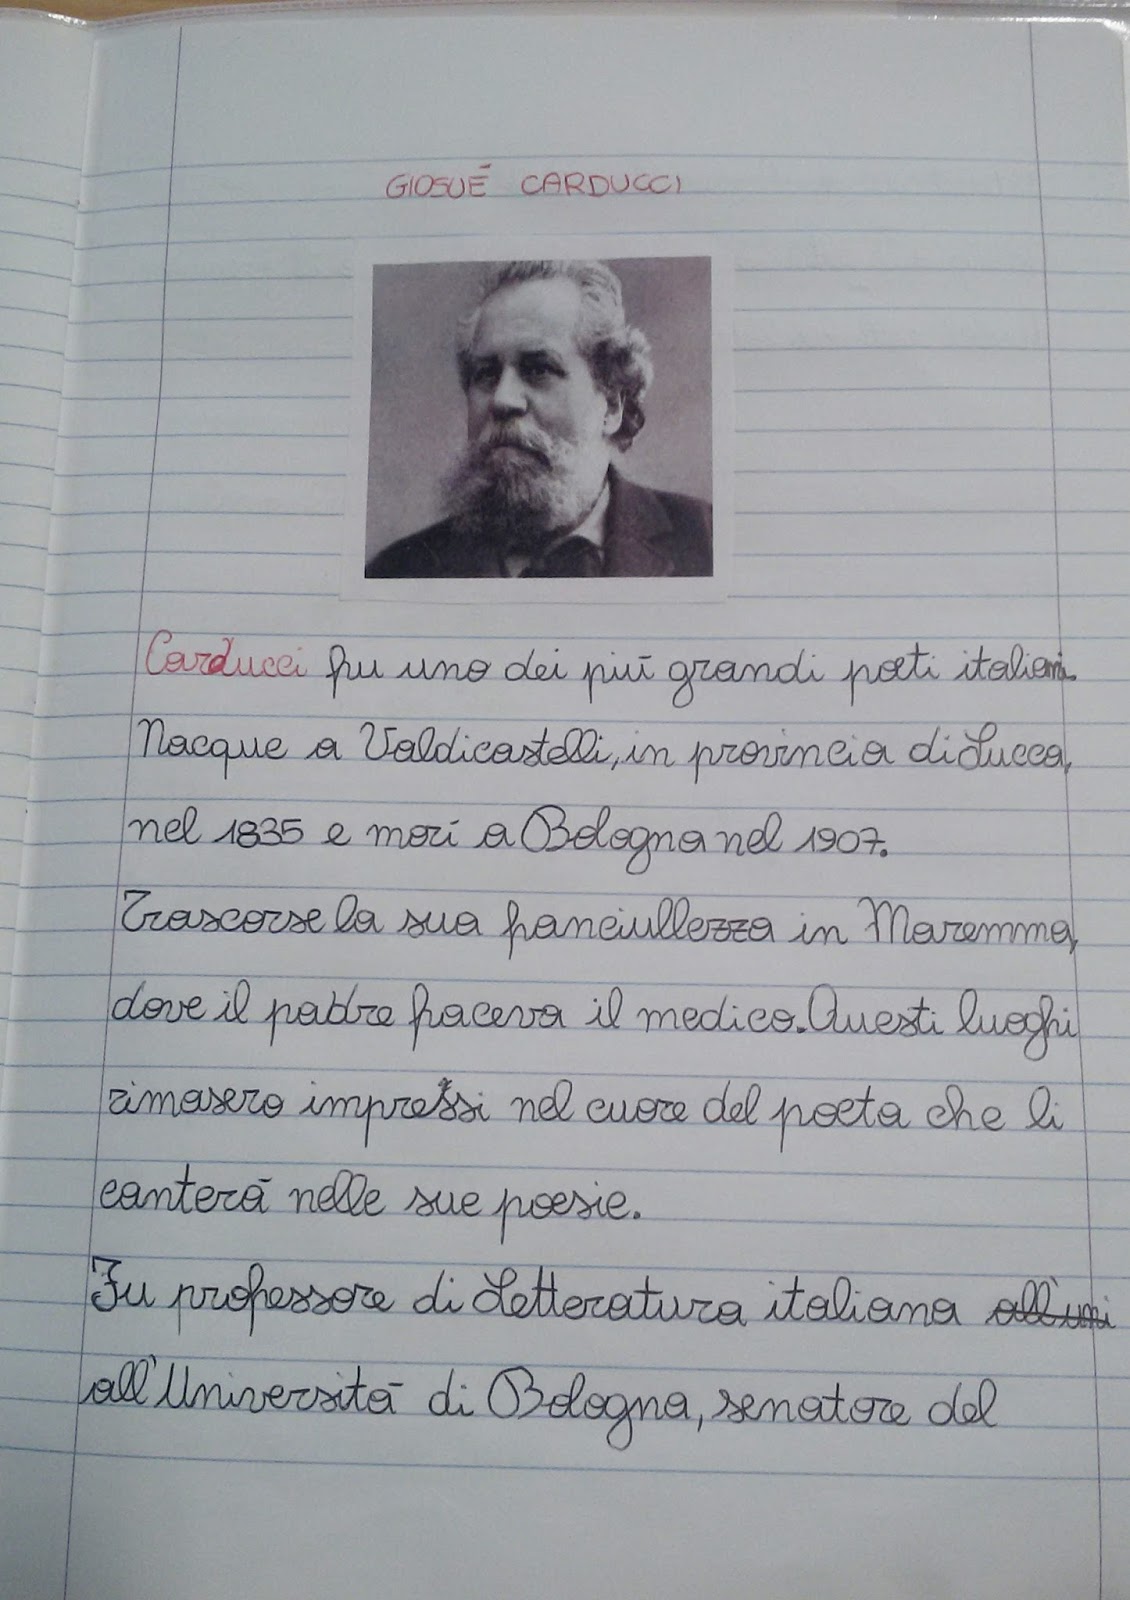 GIOSUÉ CARDUCCI
Carducci fu uno dei più grandi poeti italiani.
Nacque a Valdicastelli, in provincia di Lucca,
nel 1835 e morì a Bologna nel 1907.
Trascorse la sua fanciullezza in Maremma,
dove il padre faceva il medico. Questi luoghi
rimasero impressi nel cuore del poeta che li
canterà nelle sue poesie.
Fu professore di Letteratura italiana all'uni
all'Università di Bologna, senatore del